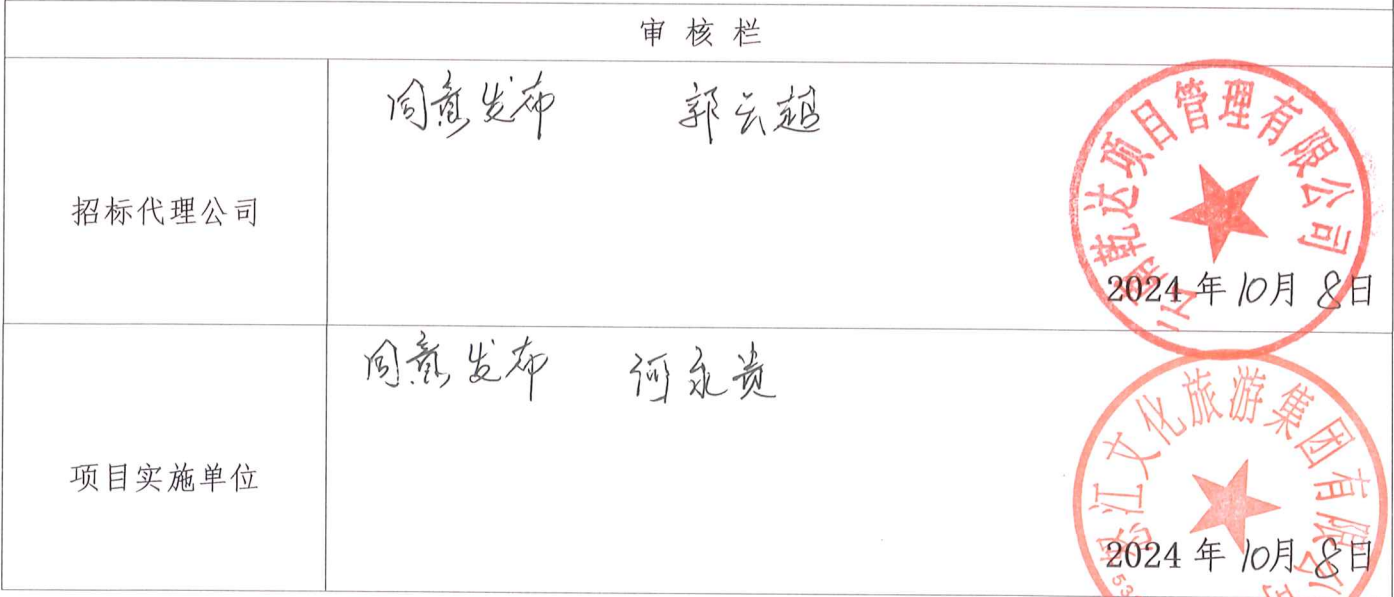 审核栏
招标代理公司
同意发布 郭云超
云南乾达项目管理有限公司
2024年10月8日
项目实施单位
同意发布 何永贵
怒江文化旅游集团有限公司
2024年10月8日